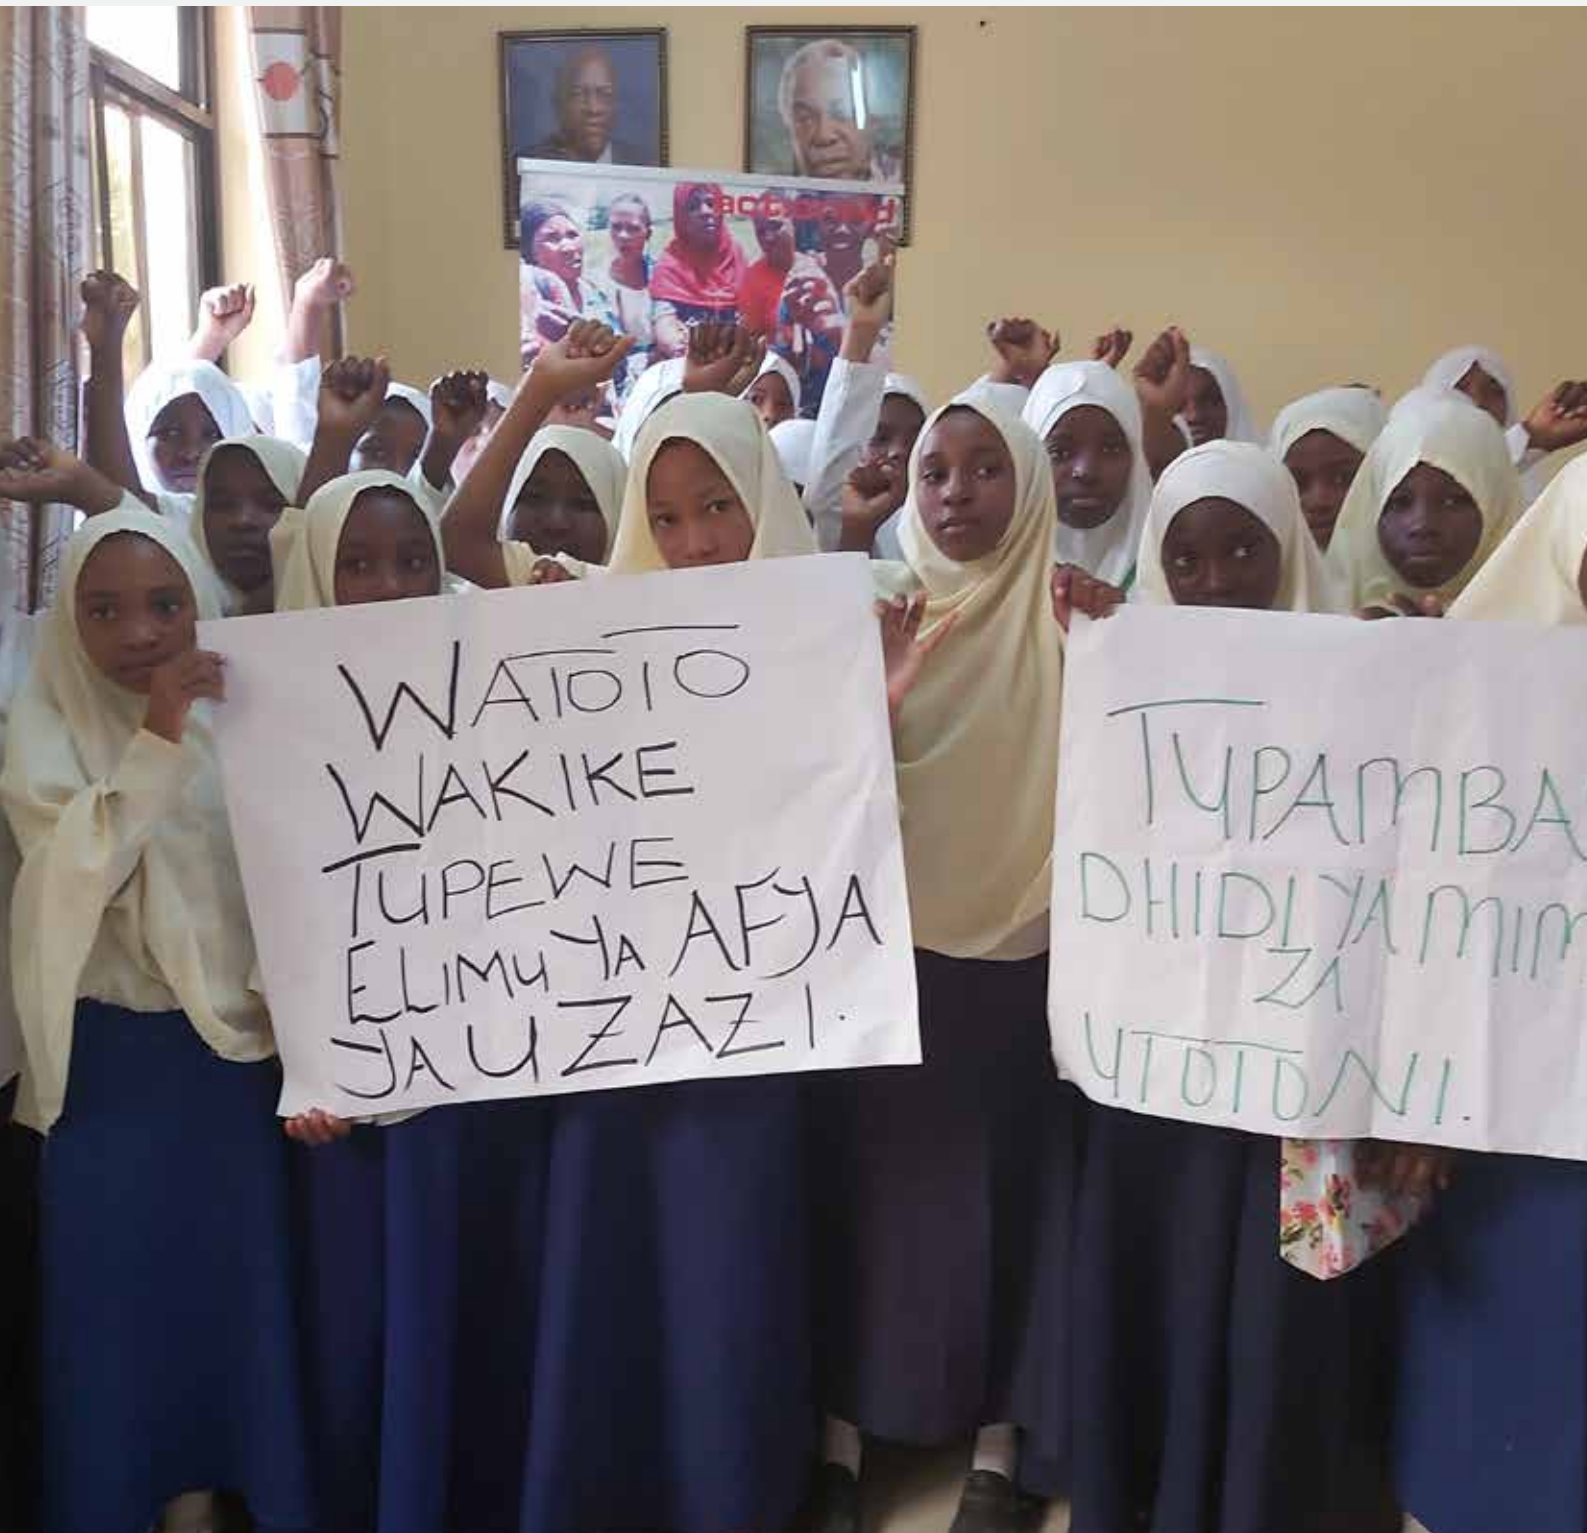 actionaid
WATOTO
WAKIKE
TUPEWE
ELIMU YA AFYA
YA UZAZI.
TUPAMBA
DHIDI YA MIM
ZA
UTOTONI.